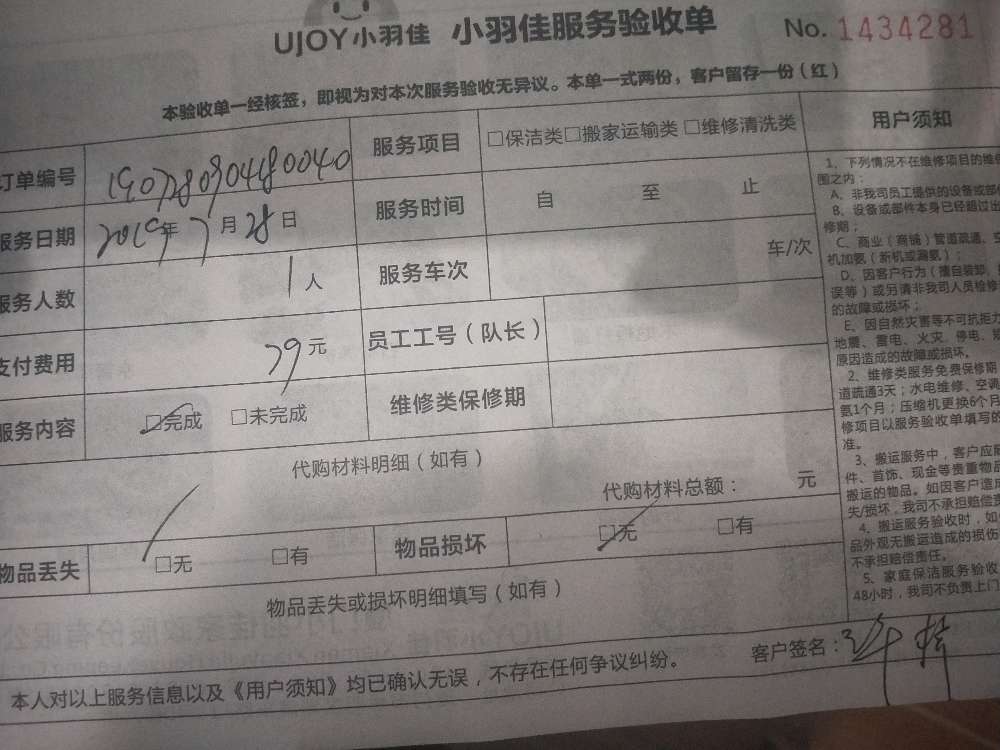 UJOY小羽佳 小羽佳服务验收单 No. 1434281
本验收单一经核签，即视为对本次服务验收无异议。本单一式两份，客户留存一份（红）
订单编号 190728090480040 服务项目 □保洁类□搬家运输类 □维修清洗类
服务日期 2019年7月28日 服务时间 自 至 止
服务人数 1人 服务车次 车/次
支付费用 79元 员工工号（队长）
服务内容 □完成 □未完成 维修类保修期
代购材料明细（如有）
代购材料总额： 元
物品丢失 □无 □有 物品损坏 □无 □有
物品丢失或损坏明细填写（如有）
本人对以上服务信息以及《用户须知》均已确认无误，不存在任何争议纠纷。 客户签名：
用户须知
1、下列情况不在维修项目的维
围之内：
A、非我司员工提供的设备或部
B、设备或部件本身已经超过出
修期；
C、商业（商铺）管道疏通、空
机加氨（新机或漏氨）；
D、因客户行为（擅自装卸、
误等）或另请非我司人员检修
的故障或损坏；
E、因自然灾害等不可抗拒力
地震、雷电、火灾、停电、
原因造成的故障或损坏。
2、维修类服务免费保修期
道疏通3天；水电维修、空调
氨1个月；压缩机更换6个月
修项目以服务验收单填写的
准。
3、搬运服务中，客户应
件、首饰、现金等贵重物品
搬运的物品。如因客户造成
失/损坏，我司不承担赔偿
4、搬运服务验收时，如
品外观无搬运造成的损伤
不承担赔偿责任。
5、家庭保洁服务验收
48小时，我司不负责上门